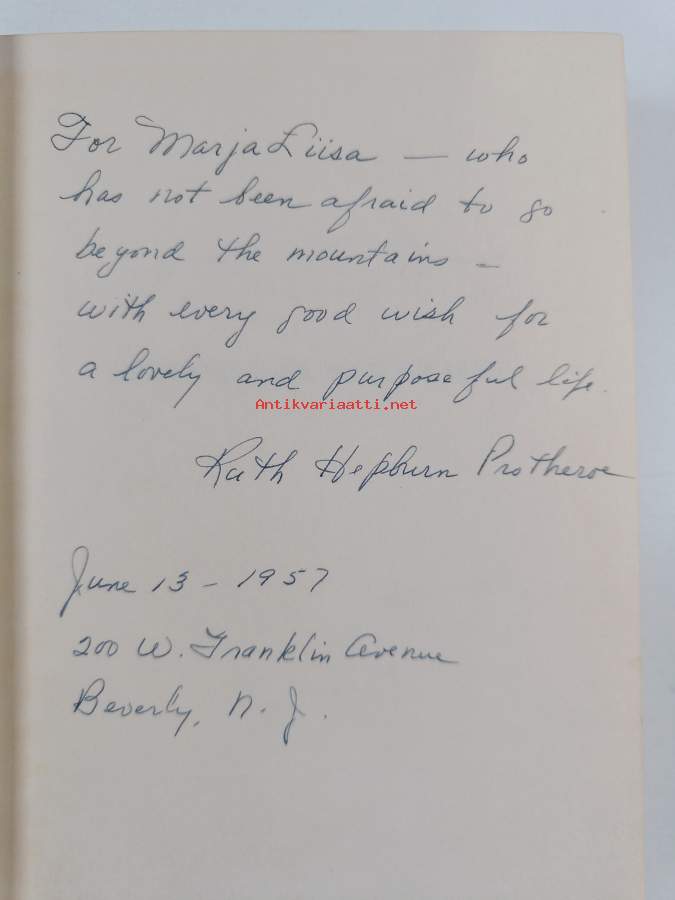 For Marja Liisa — who
has not been afraid to go
beyond the mountains –
with every good wish for
a lovely and purposeful life.
Antikvariaatti.net
Ruth Hepburn Protheroe
June 13 - 1957
200 W. Franklin Avenue
Beverly, N. J.